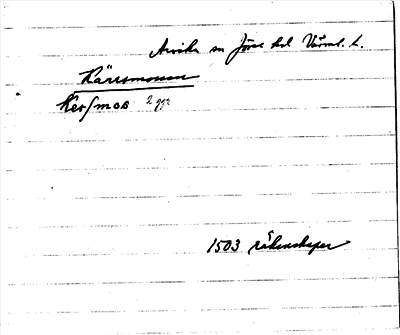 Arvika sn Jösse hd Värml. l.
Kärrsmossen
Kersmos 2 ggr
1503 räkenskaper